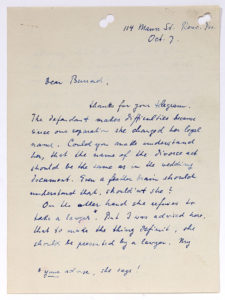 Oct. 7.
Dear
thanks for your telegram.
The defendant makes difficulties because
since our separation she changed her legal
name. Could you make understand
her, that the name of the divorce act
should be the same as in the wedding
document. Even a feather brain should
understand that, shouldn't she?
On the other hand she refuses to
take a lawyer.* But I was advised here,
that to make the thing definit, she
should be presented by a lawyer. My
* your advise, she says!